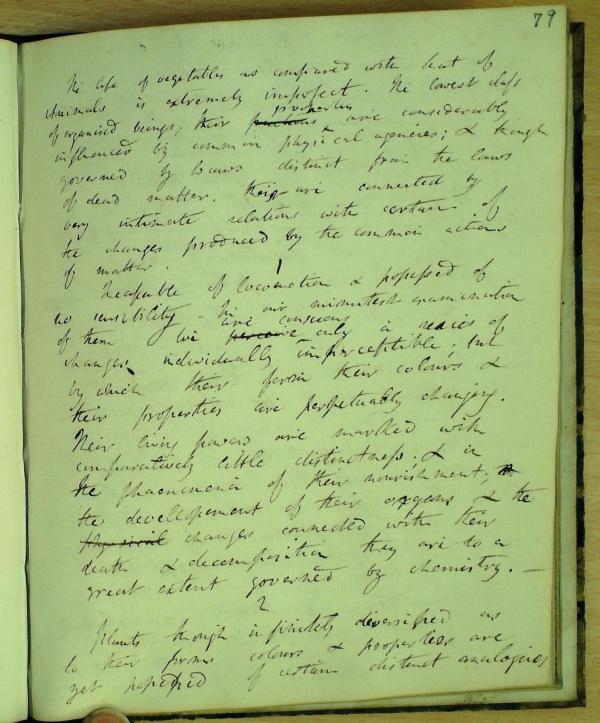 79
The life of vegetables as compared with that of
Animals is extremely imperfect. The lowest class
of organised beings; their functions properties are considerably
influenced by common physical agencies; & though
governed by laws distinct from the laws
of dead matter. they are connected by
very intimate relations with certain of
the changes produced by the common actions
of matter.
1
Incapable of locomotion & possessed of
no sensibility - In our minutest examination
of them we perceive are conscious only a series of
changes individually imperceptible; but
by which their form their colours &
their properties are perpetually changing.
Their living powers are marked with
comparatively little distinctness; & in
the phaenomena of their nourishment,
the developement of their organs & the
physical changes connected with their
death & decomposition they are to a
great extent governed by chemistry. —
2
Plants though infinitely diversified as
to their forms colours & properties are
yet possessed of certain distinct analogies